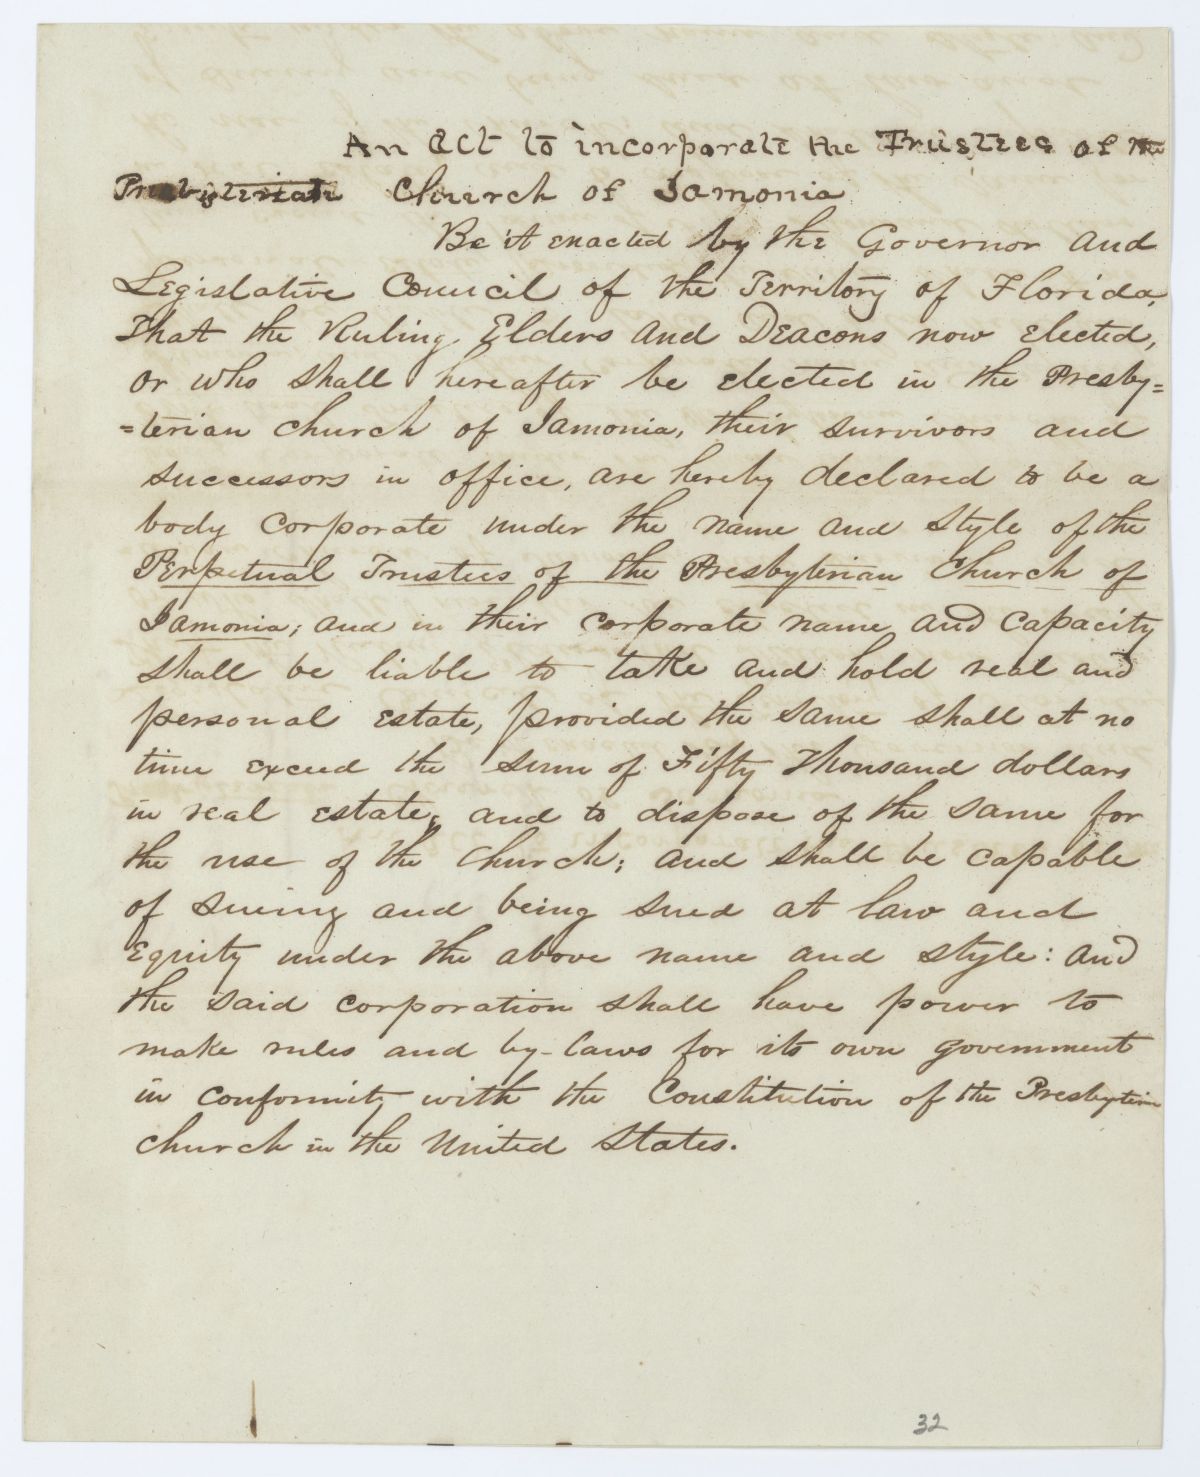 An act to incorporate the Trustees of the
Presbyterian Church of Iamonia
Be it enacted by the Governor and
Legislative Council of the Territory of Florida,
That the Ruling Elders and Deacons now elected,
or who shall hereafter be elected in the Presby=
=terian church of Iamonia, their survivors and
successors in office, are hereby declared to be a
body corporate under the name and style of the
Perpetual Trustees of the Presbyterian Church of
Iamonia; and in their corporate name and capacity
shall be liable to take and hold real and
personal estate, provided the same shall at no
time exceed the sum of Fifty Thousand dollars
in real estate, and to dispose of the same for
the use of the church; and shall be capable
of suing and being sued at law and
Equity under the above name and style: and
the said corporation shall have power to
make rules and by-laws for its own government
in conformity with the Constitution of the Presbyterian
church in the United States.
32